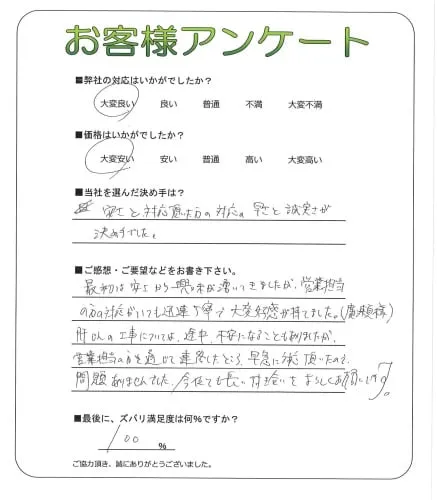 お客様アンケート
■弊社の対応はいかがでしたか？
大変良い 良い 普通 不満 大変不満
■価格はいかがでしたか？
大変安い 安い 普通 高い 大変高い
■当社を選んだ決め手は？
安さと対応頂いた方の対応の早さと誠実さが
決め手でした。
■ご感想・ご要望などをお書き下さい。
最初は安さから興味が湧いてきましたが、営業担当
の方の対応がいつも迅速丁寧で大変好感が持てました。(廣瀬様)
肝心の工事については、途中、不安になることもありましたが、
営業担当の方を通じて連絡したところ、早急に対応頂いたので、
問題ありませんでした。今後とも長いお付き合いをよろしくお願いします!
■最後に、ズバリ満足度は何%ですか？
100 %
ご協力頂き、誠にありがとうございました。